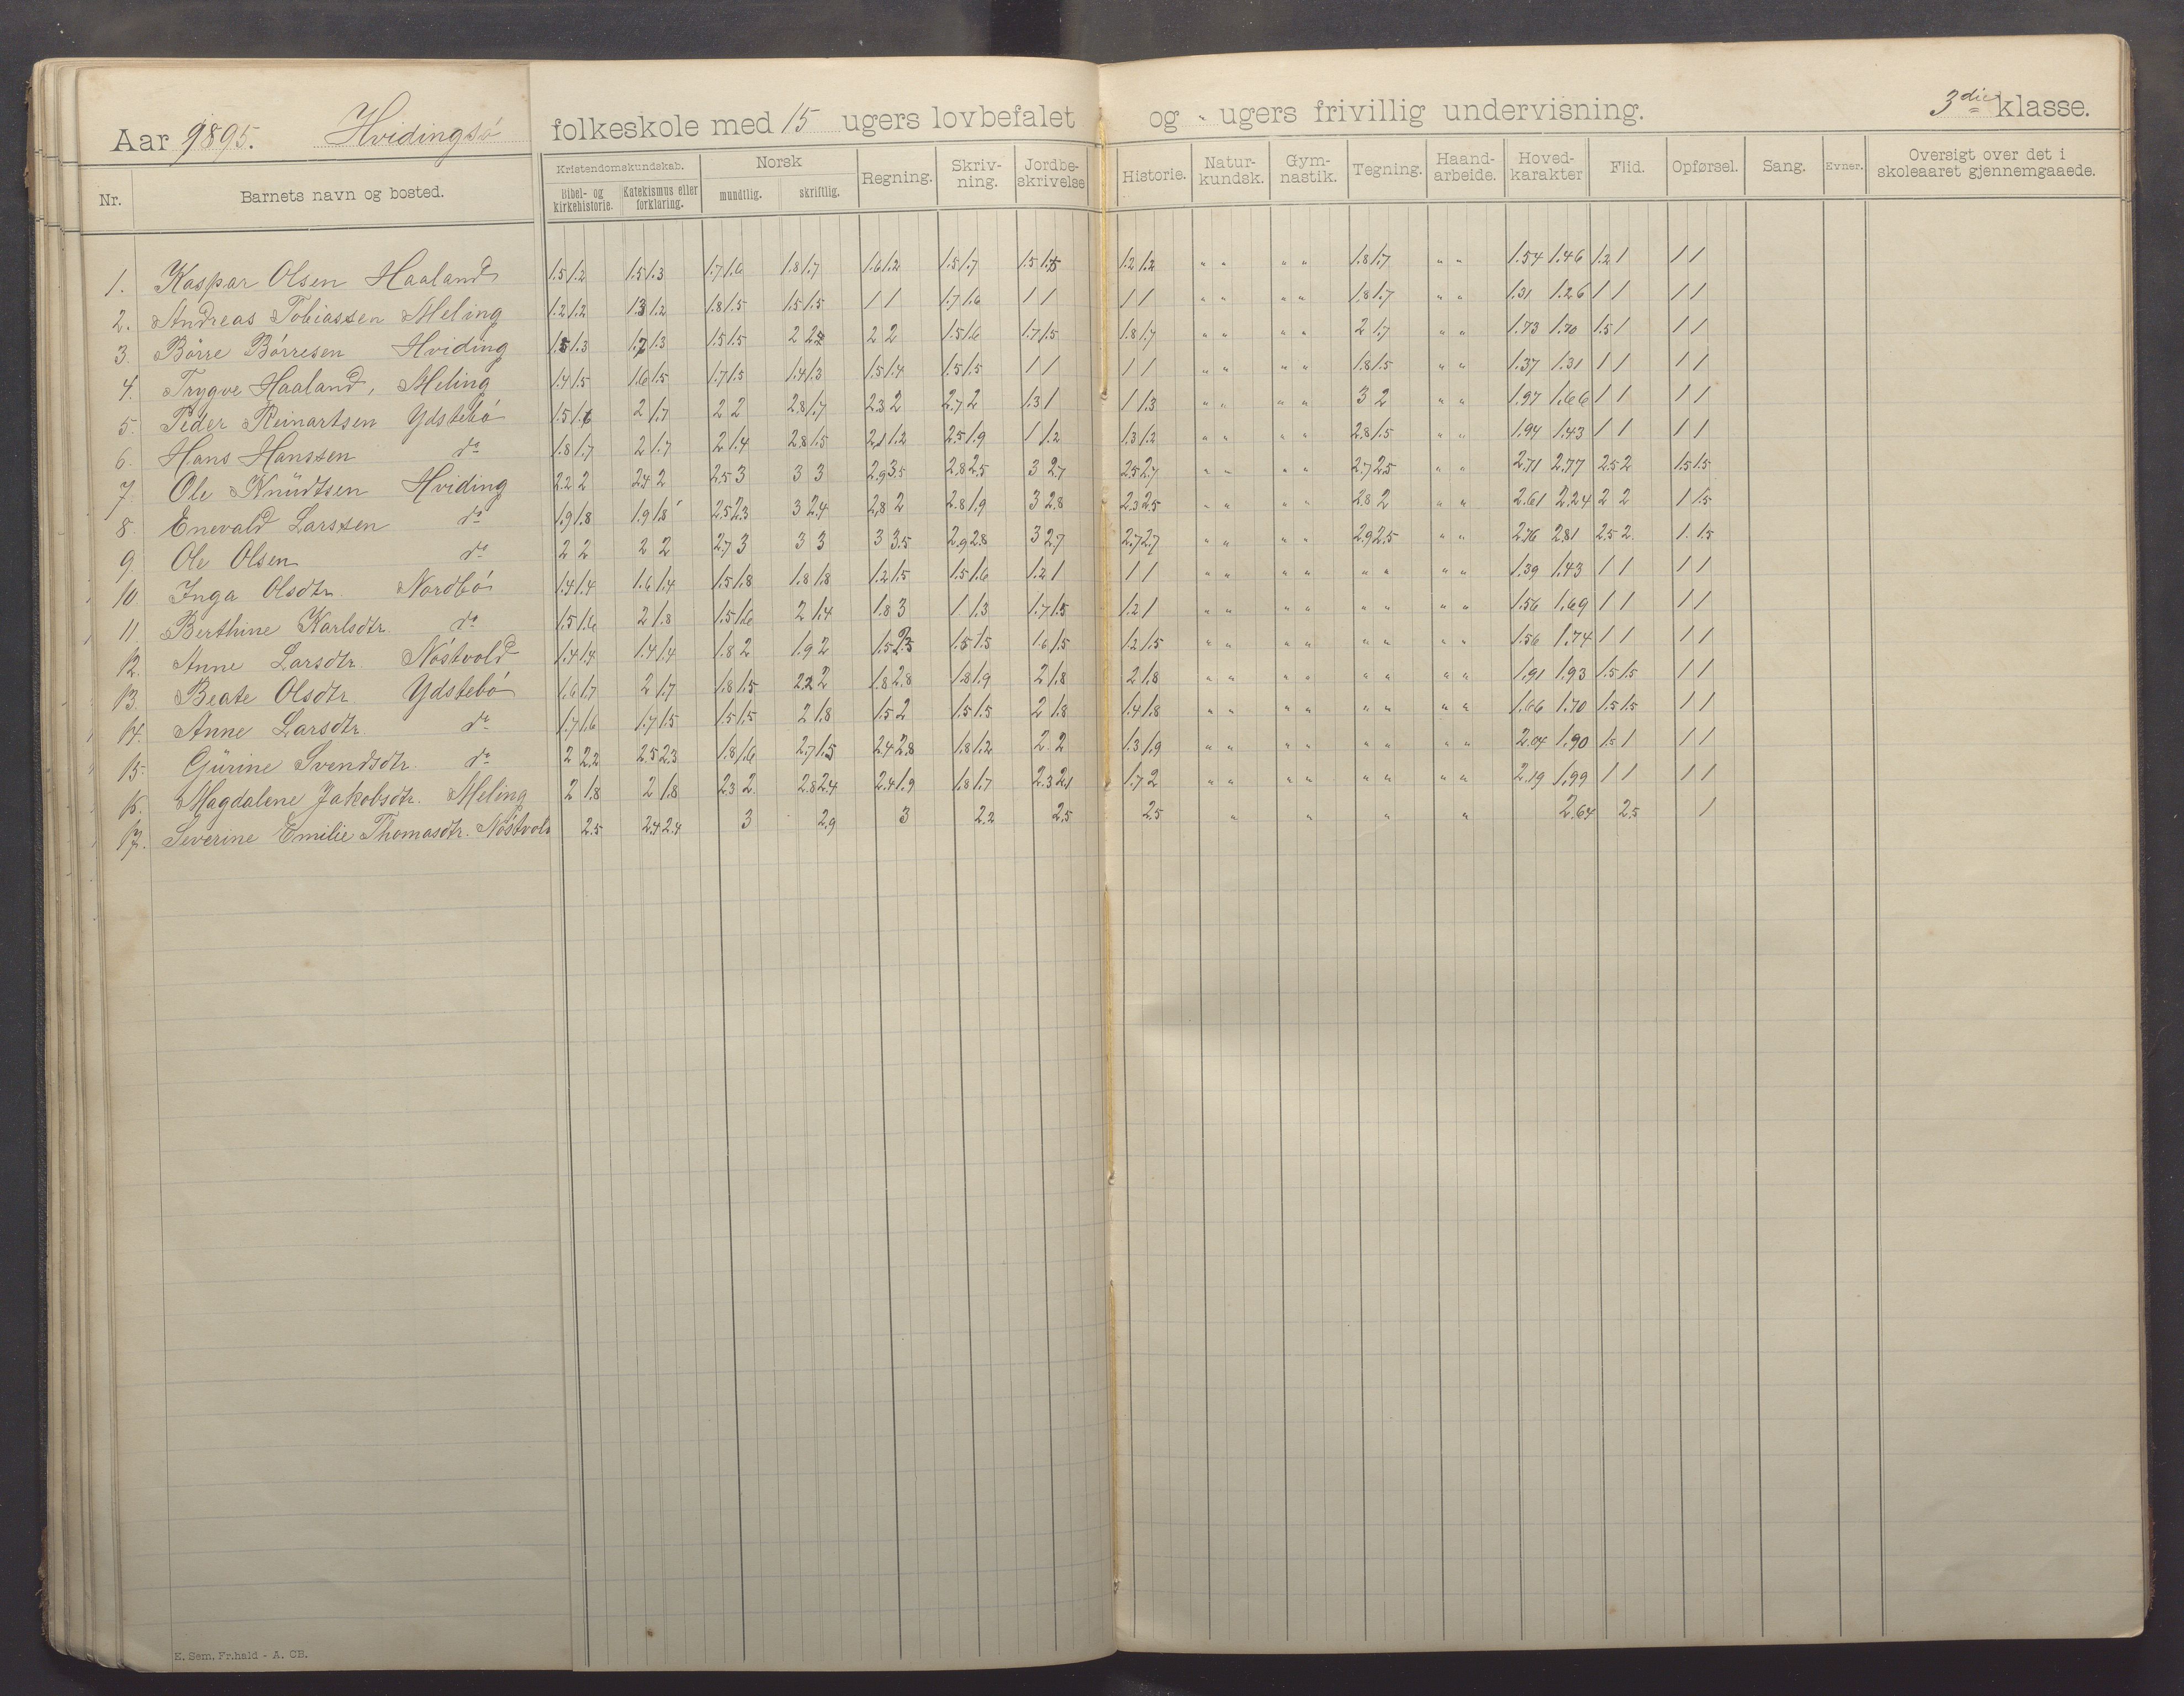 Aar 1895. Hvidingsö folkeskole med 15 ugers lovbefalet og " ugers frivillig undervisning. 3die klasse.
Nr. Barnets navn og bosted. Kristendomskundskab. Bibel- og kirkehistorie. Katekismus eller forklaring. Norsk mundtlig. skriftlig. Regning. Skriv-ning. Jordbe-skrivelse Historie. Natur-kundsk. Gym-nastik. Tegning. Haand-arbeide. Hoved-karakter Flid. Opførsel. Sang. Evner. Oversigt over det i skoleaaret gjennemgaaede.
1. Kaspar Olsen Haaland 1.5 1.2 1.5 1.3 1.7 1.6 1.8 1.7 1.6 1.2 1.5 1.7 1.5 1.5 1.2 1.2 " " " " 1.8 1.7 " " 1.54 1.46 1.2 1 1 1
2. Andreas Tobiassen Meling 1.2 1.2 1.3 1.2 1.8 1.5 1.5 1.5 1 1 1.7 1.6 1 1 1 1 " " " " 1.8 1.7 " " 1.31 1.26 1 1 1 1
3. Börre Börresen Hviding 1.5 1.3 1.7 1.3 1.5 1.5 2 2.2 2 2 1.5 1.6 1.7 1.5 1.8 1.7 " " " " 2 1.7 " " 1.73 1.70 1.5 1 1 1
4. Trygve Haaland, Meling 1.4 1.5 1.6 1.5 1.7 1.5 1.4 1.3 1.5 1.4 1.5 1.5 1 1 1 1 " " " " 1.8 1.5 " " 1.37 1.31 1 1 1 1
5. Peder Reinartsen Ydstebö 1.5 1.6 2 1.7 2 2 2.8 1.7 2.3 2 2.7 2 1.3 1 1 1.3 " " " " 3 2 " " 1.97 1.66 1 1 1 1
6. Hans Hanssen do 1.8 1.7 2 1.7 2 1.4 2.8 1.5 2.1 1.2 2.5 1.9 1 1.2 1.3 1.2 " " " " 2.8 1.5 " " 1.94 1.43 1 1 1 1
7. Ole Knüdtsen Hviding 2.2 2 2.4 2 2.5 3 3 3 2.9 3.5 2.8 2.5 3 2.7 2.5 2.7 " " " " 2.7 2.5 " " 2.71 2.77 2.5 2 1.5 1.5
8. Enevald Larssen do 1.9 1.8 1.9 1.8 2.5 2.3 3 2.4 2.8 2 2.8 1.9 3 2.8 2.3 2.5 " " " " 2.8 2 " " 2.61 2.24 2 2 1 1.5
9. Ole Olsen do 2 2 2 2 2.7 3 3 3 3 3.5 2.9 2.8 3 2.7 2.7 2.7 " " " " 2.9 2.5 " " 2.76 2.81 2.5 2 1. 1.5
10 Inga Olsdtr. Nordbö 1.4 1.4 1.6 1.4 1.5 1.8 1.8 1.8 1.2 1.5 1.5 1.6 1.2 1 1 1 " " " " " " " " 1.39 1.43 1 1 1 1
11. Berthine Karlsdtr. do 1.5 1.6 2 1.8 1.5 1.6 2 1.4 1.8 3 1 1.3 1.7 1.5 1.2 1 " " " " " " " " 1.56 1.69 1 1 1 1
12. Anne Larsdtr. Nöstvold 1.4 1.4 1.4 1.4 1.8 2 1.9 2 1.5 2.5 1.5 1.5 1.6 1.5 1.2 1.5 " " " " " " " " 1.56 1.74 1 1 1 1
13. Beate Olsdtr Ydstebö 1.6 1.7 2 1.7 1.8 1.5 2.2 2 1.8 2.8 1.8 1.9 2 1.8 2 1.8 " " " " " " " " 1.91 1.93 1.5 1.5 1 1
14. Anne Larsdtr. do 1.7 1.6 1.7 1.5 1.5 1.5 2 1.8 1.5 2 1.5 1.5 2 1.8 1.4 1.8 " " " " " " " " 1.66 1.70 1.5 1.5 1 1
15. Gürine Svendsdtr. do 2 2.2 2.5 2.3 1.8 1.6 2.7 1.5 2.4 2.8 1.8 1.2 2. 2 1.3 1.9 " " " " " " " " 2.04 1.90 1.5 1 1 1
16. Magdalene Jakobsdtr. Meling 2 1.8 2 1.8 2.3 2 2.8 2.4 2.4 1.9 1.8 1.7 2.3 2.1 1.7 2 " " " " " " " " 2.19 1.99 1 1 1 1
17. Severine Emilie Thomasdtr. Nöstvold 2.5 2.4 2.4 3 2.9 3 2.2 2.5 2.5 " " " " 2.64 2.5 1
E. Sem. Fr.hald - A. CB.